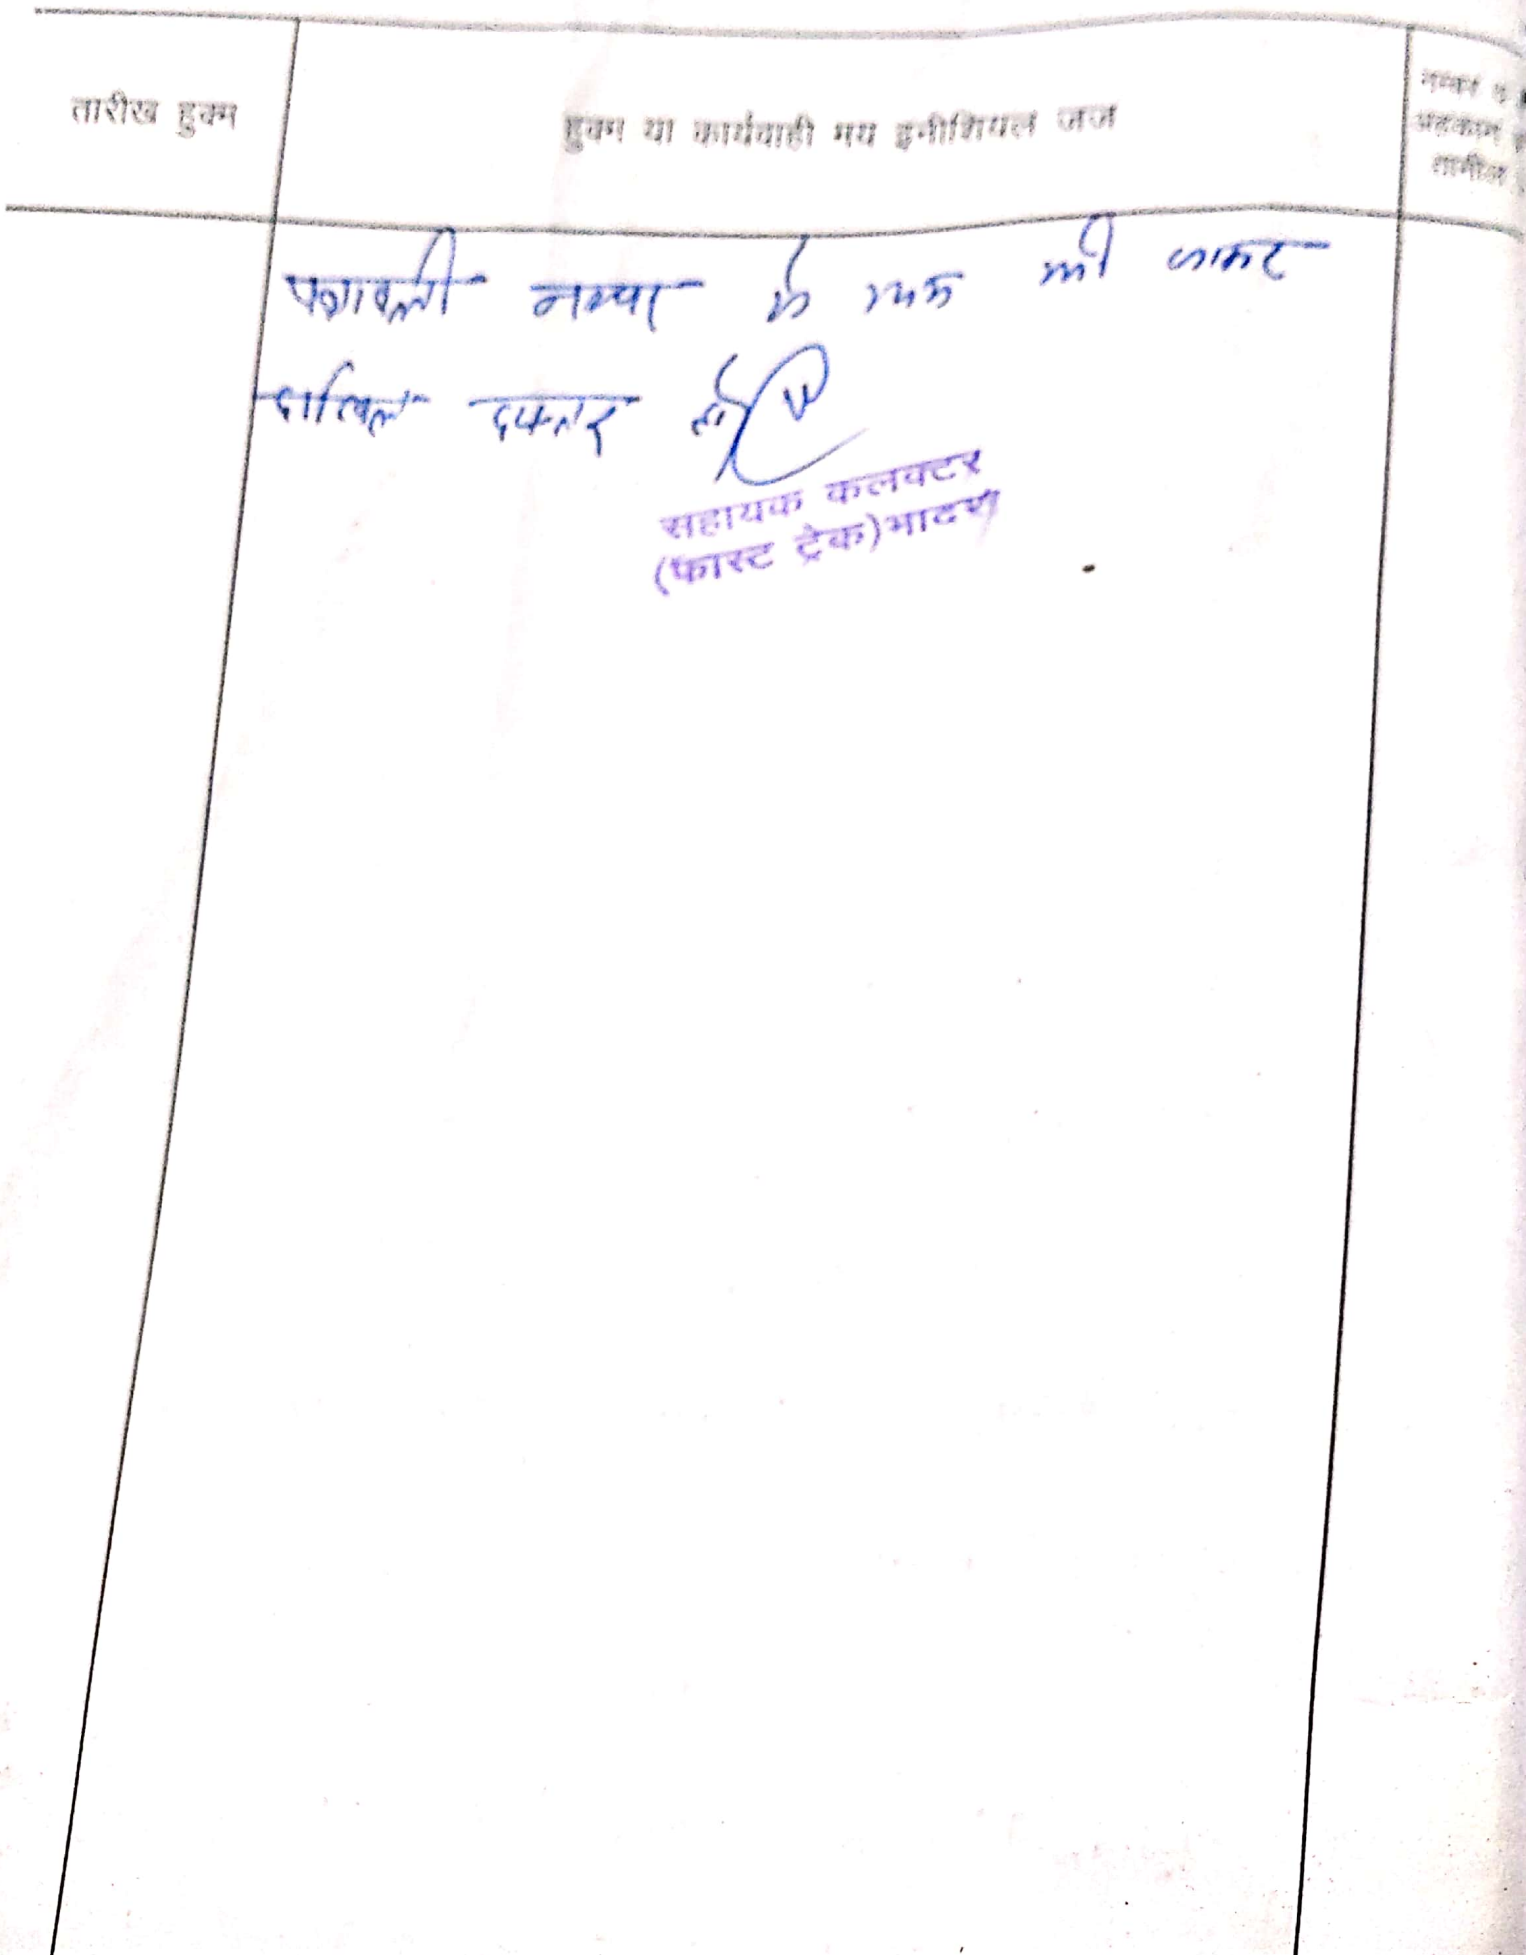 तारीख हुक्म
हुक्म या कार्यवाही मय इनीशियल जज
नम्बर व
अहकाम
तामील
पत्रावली नम्बर से कम की जाकर
दाखिल दफ्तर हो
सहायक कलक्टर
(फास्ट ट्रेक)